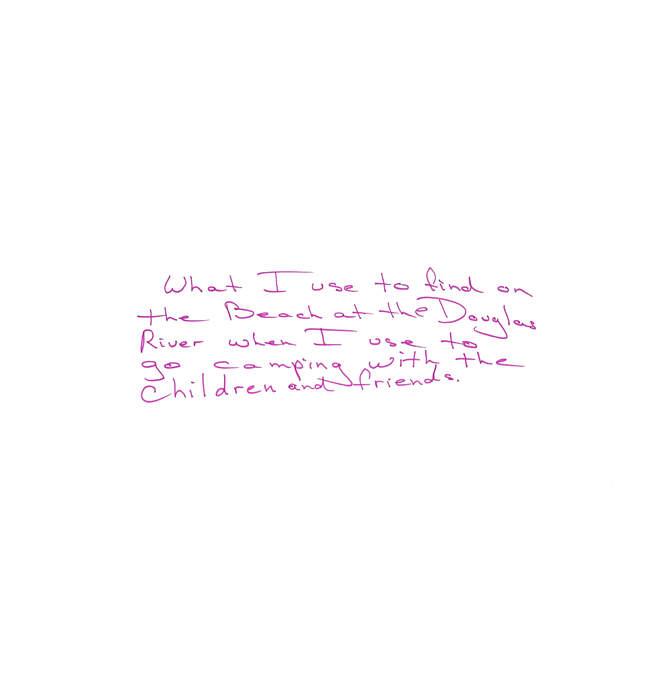 What I use to find on
the Beach at the Douglas
River when I use to
go camping with the
Children and friends.